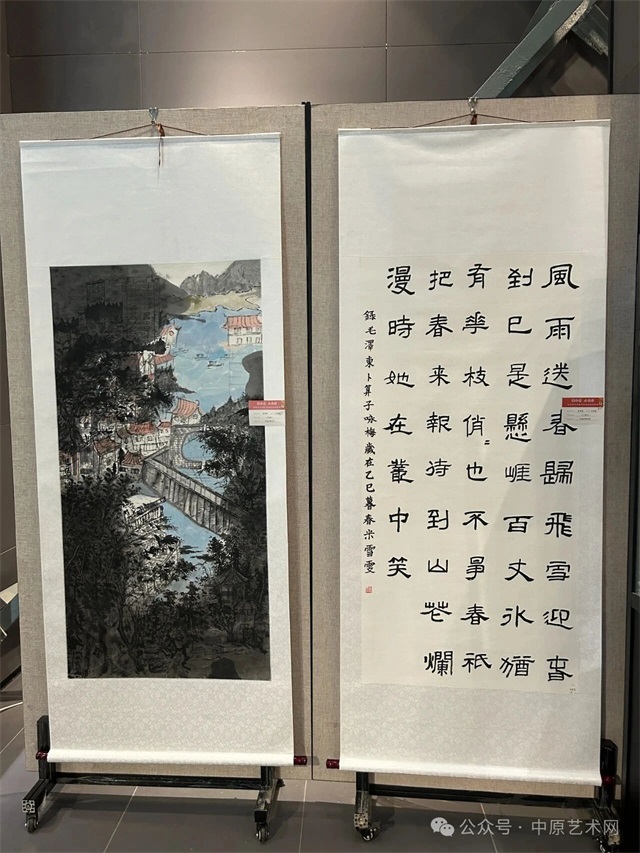 風雨送春歸飛雪迎春
到已是懸崖百丈冰猶
有華枝俏〻也不爭春祇
把春來報待到山花爛
漫時她在叢中笑
錄毛澤東卜算子咏梅歲在乙巳暮春米雪雯
公众号 · 中原艺术网